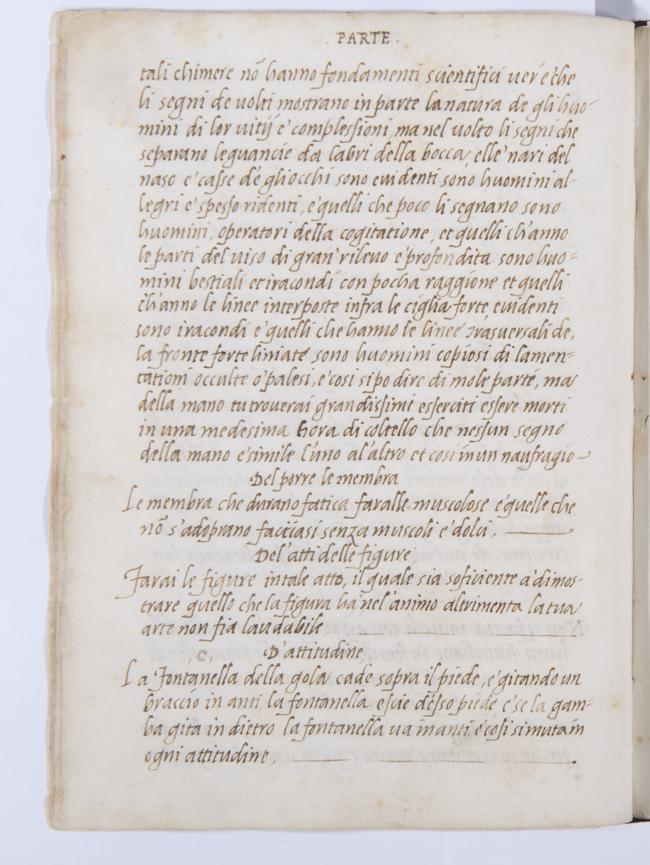 . PARTE .
tali chimere nõ hanno fondamenti scientifici ver'è che
li segni de volti mostrano in parte la natura de gli huo-
mini di lor vitij e' complessioni, ma nel volto li segni che
separano le guancie da labri della bocca, elle' nari del
naso e' casse de gli occhi sono evidenti sono huomini al-
legri e' spesso ridenti, e' quelli che poco li segnano sono
huomini, operatori della cogitatione, et quelli ch'anno
le parti del viso di gran' rilevo e' profondita sono huo=
mini bestiali et iracondi con pocha raggione et quelli
ch'anno le linee interposte infra le ciglia forte evidenti
sono iracondi e' quelli che hanno le linee trasversali de,
la fronte forte liniate sono huomini copiosi di lamen=
tationi occulte o' palesi, e' cosi si po dire di mole parte, ma
della mano tu troverai grandissimi esserciti essere morti
in una medesima hora di coltello che nessun segno
della mano e' simile l'uno al'altro et cosi in un naufragio
Del porre le membra
Le membra che durano fatica faralle muscolose e' quelle che
nõ s'adoprano facciasi senza muscoli e' dolci.
Del'atti delle figure
Farai le figure in tale atto, il quale sia soficiente a' dimos-
trare quello che la figura ha' nel'animo altrimenta la tua
arte non fia laudabile
D'attitudine,
La Fontanella della gola cade sopra il piede, e' gitando un
braccio in anti la fontanella escie d'esso piede e' se la gam=
ba gita in dietro la fontanella va inanti e' cosi si muta in
ogni attitudine,